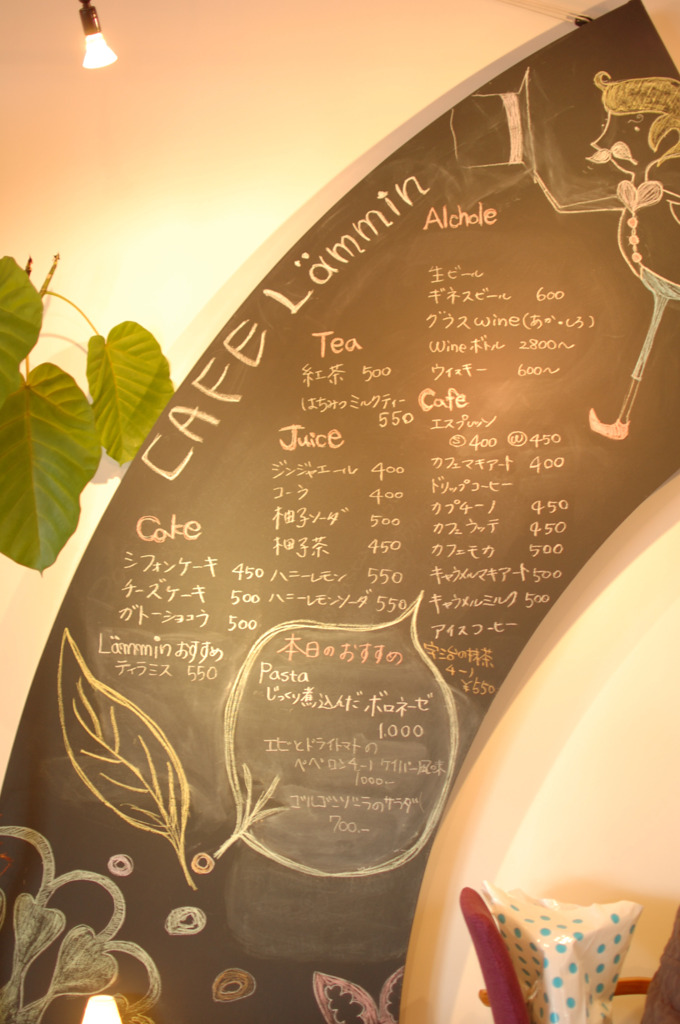 CAFE Lämmin
Alchole
生ビール
ギネスビール 600
グラスwine(あか・しろ)
Wineボトル 2800〜
ウィスキー 600〜
Tea
紅茶 500
はちみつミルクティー
550
Cafe
エスプレッソ
Ⓢ400 Ⓦ450
カフェマキアート 400
ドリップコーヒー
カプチーノ 450
カフェラッテ 450
カフェモカ 500
キャラメルマキアート 500
キャラメルミルク 500
アイスコーヒー
宇治の抹茶
¥650
Juice
ジンジャエール 400
コーラ 400
柚子ソーダ 500
柚子茶 450
ハニーレモン 550
ハニーレモンソーダ 550
Cake
シフォンケーキ 450
チーズケーキ 500
ガトーショコラ 500
Lämminおすすめ
ティラミス 550
本日のおすすめ
Pasta
じっくり煮込んだボロネーゼ
1.000
エビとドライトマトの
ペペロンチーノ ケイパー風味
1000.-
ゴルゴンゾーラのサラダ
700.-